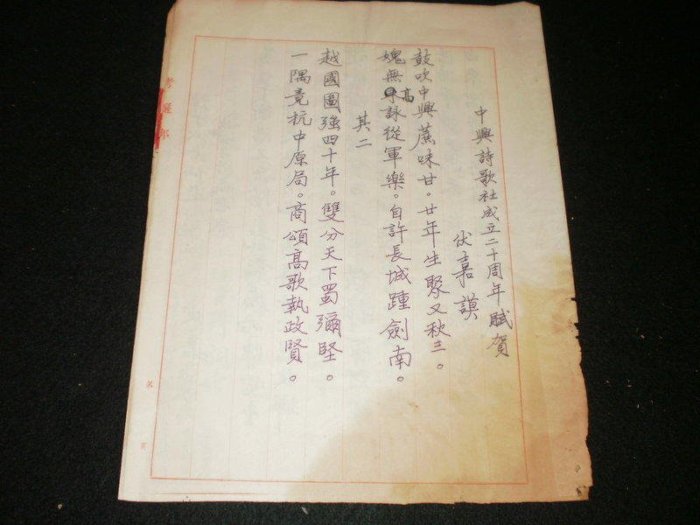 中興詩歌社成立二十周年賦賀
伏嘉謨
鼓吹中興蔗味甘。廿年生聚又秋三。
愧無高詠從軍樂。自許長城踵劍南。
其二
越國圖強四十年。雙分天下蜀彌堅。
一隅竟抗中原局。商頌高歌執政賢。
考